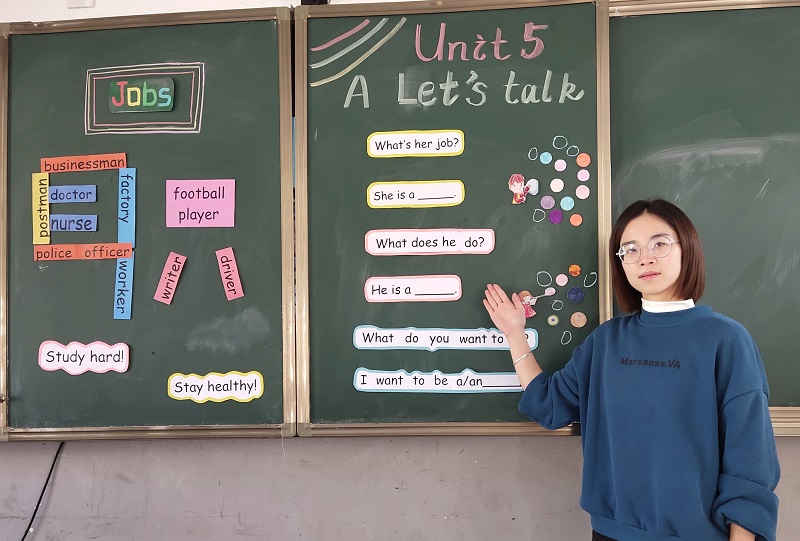 Jobs
businessman
postman
doctor
nurse
factory
police officer
worker
football
player
writer
driver
Study hard!
Stay healthy!
Unit 5
A Let's talk
What's her job?
She is a _____.
What does he do?
He is a _____.
What do you want to
I want to be a/an_____